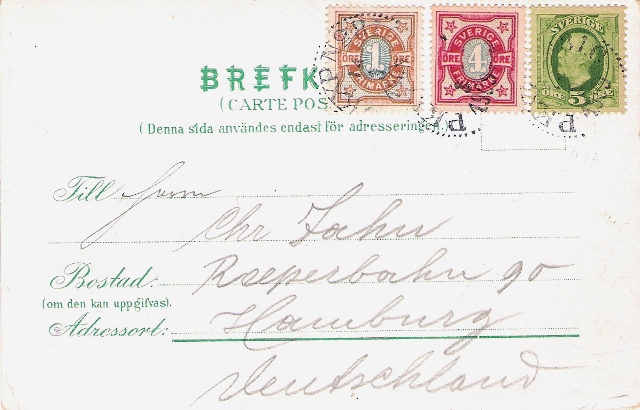 SVERIGE SVERIGE SVERIGE
ÖRE 1 ÖRE ÖRE 4 ÖRE
FRIMÄRKE FRIMÄRKE
ÖRE 5 ÖRE
BREFK
(CARTE POS
(Denna sida användes endast för adresseringen.)
Till Herrn
Chr Jahn
Bostad: Raeperbahn 90
(om den kan uppgifvas).
Adressort: Hamburg
Deutschland